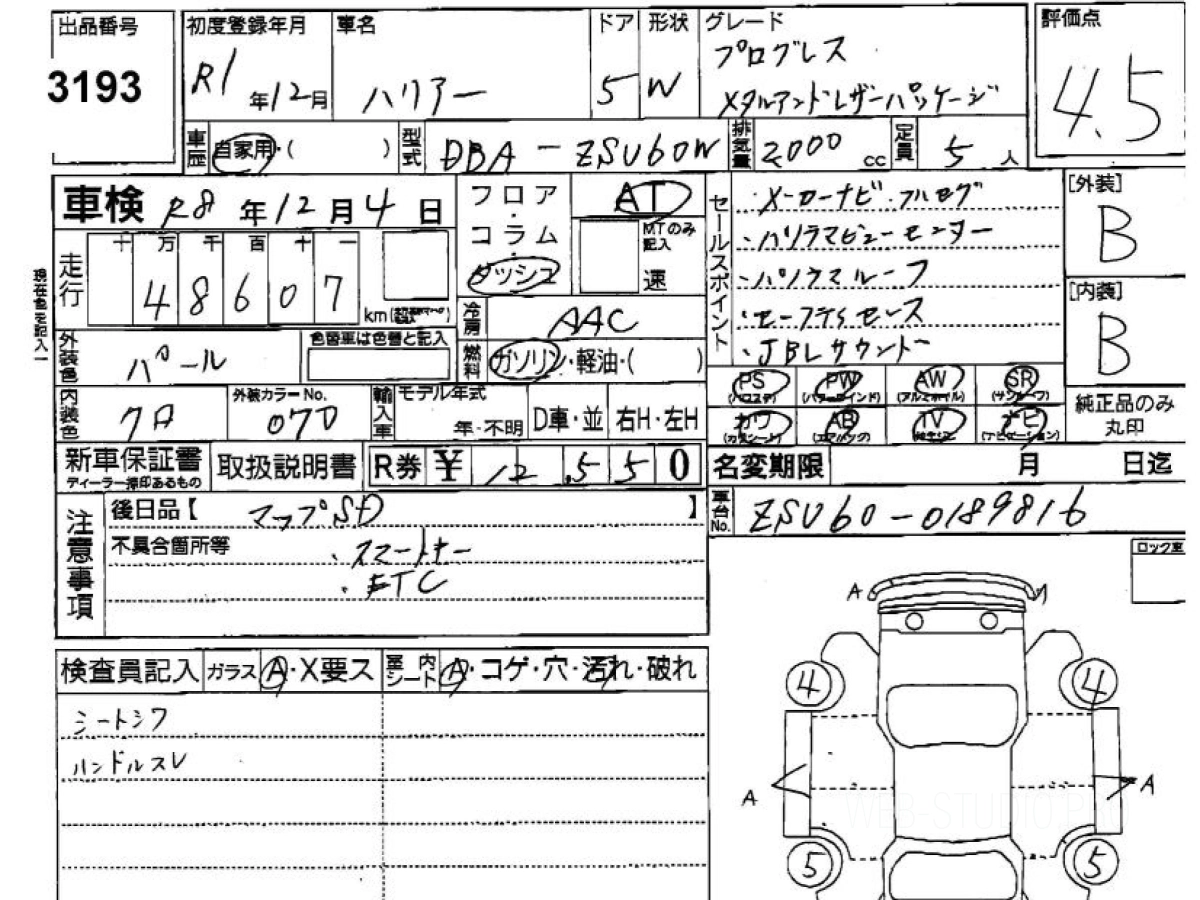 出品番号
3193
初度登録年月
R1年12月
車名
ハリアー
ドア
5
形状
W
グレード
プログレス
メタルアンドレザーパッケージ
評価点
4.5
車歴
自家用・( )
型式
DBA-ZSU60W
排気量
2000cc
定員
5人
車検 R8年12月4日
走行
十 万 千 百 十 一
48607
km
現在色を記入
フロア・コラム・ダッシュ
AT
MTのみ記入
速
冷房
AAC
燃料
ガソリン・軽油・( )
外装色
パール
色替車は色替と記入
内装色
クロ
外装カラーNo.
070
輸入車
モデル年式
年・不明
D車・並
右H・左H
セールスポイント
・メーカーナビ・フルセグ
・パノラマビューモニター
・パノラマルーフ
・セーフティセンス
・JBLサウンド
[外装]
B
[内装]
B
PS
(パワステ)
PW
(パワーウインド)
AW
(アルミホイル)
SR
(サンルーフ)
カワ
(カワシート)
AB
(エアバッグ)
TV
ナビ
(ナビゲーション)
純正品のみ
丸印
新車保証書
ディーラー捺印あるもの
取扱説明書
R券 ¥ 12,550
名変期限 月 日迄
車台No.
ZSU60-0189816
注意事項
後日品【 マップSD 】
不具合箇所等
・スマートキー
・ETC
ロック車
検査員記入
ガラス A・X要ス
室内シート A・コゲ・穴・汚れ・破れ
シートシワ
ハンドルスレ
A
4
4
A
A
5
5
WEB-STUDIO.P